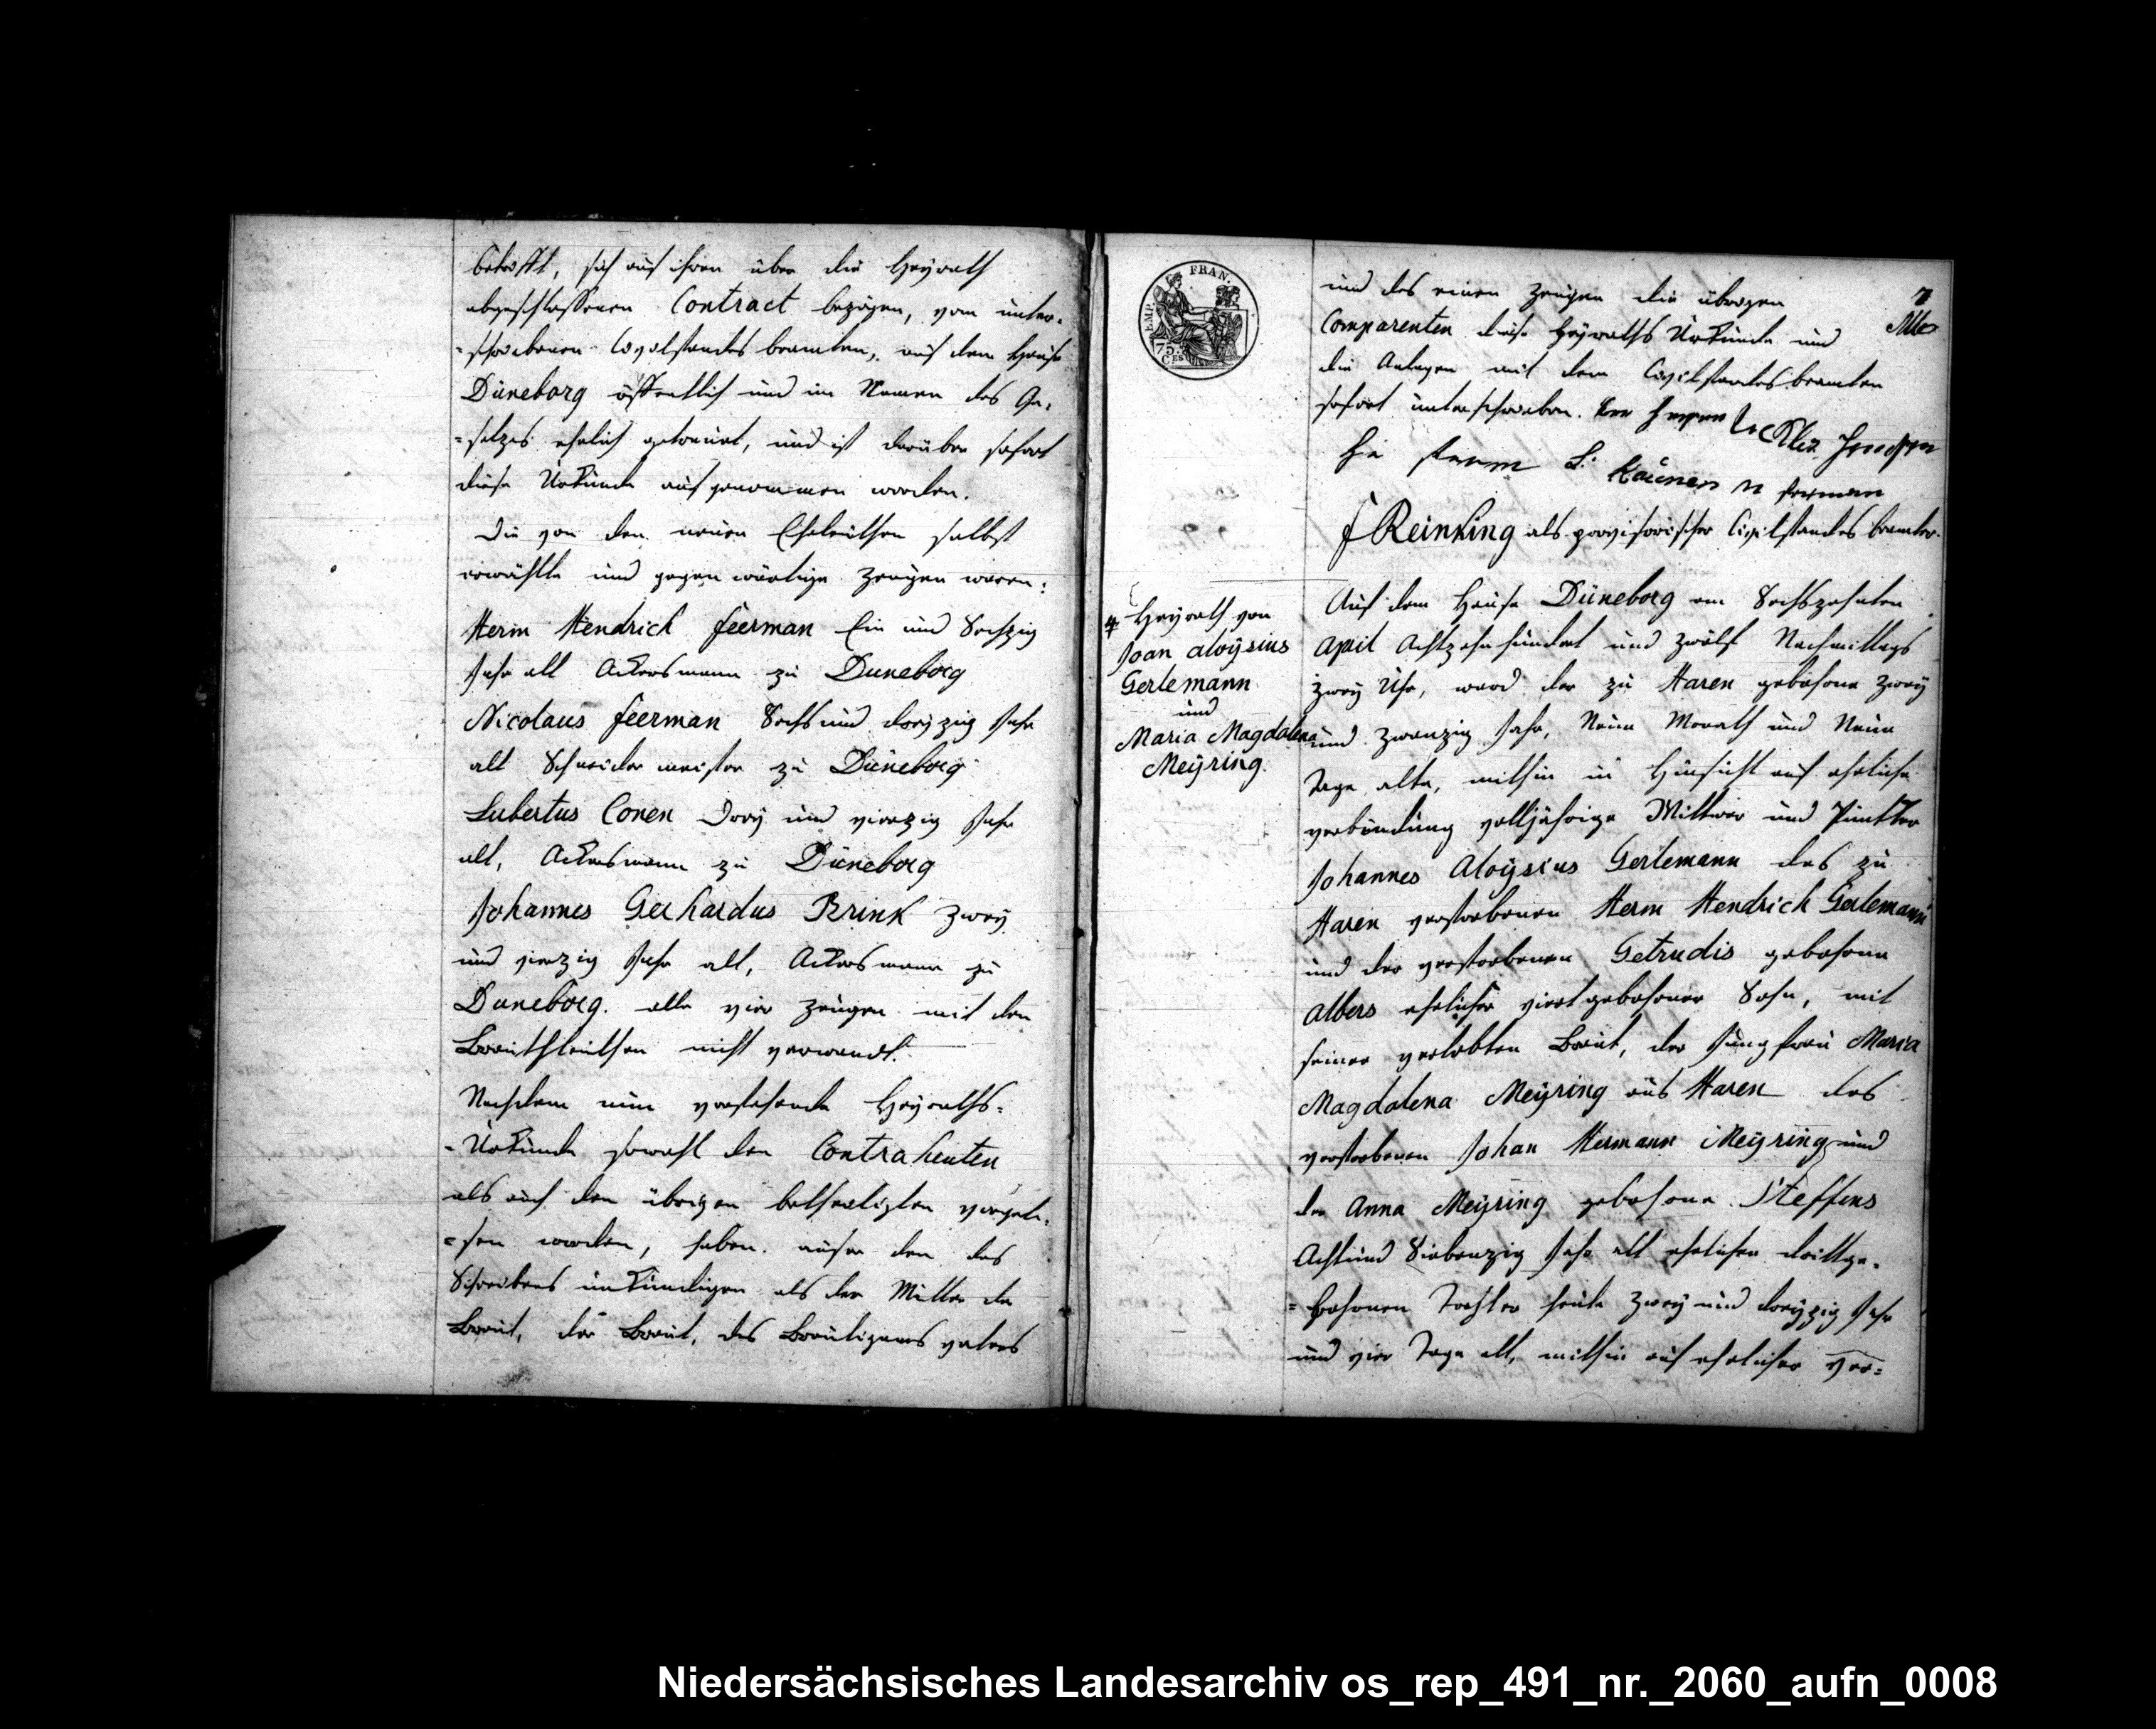 betrifft, sich auf ihren über die Heyrath
abgeschlossenen Contract bezogen, vom unter-
=schriebenen Civilstandes beamten, auf dem Hause
Düneborg öffentlich und im Namen des Ge-
=setzes ehelich getrauet, und ist darüber sofort
diese Urkunde aufgenommen worden.
Die von den neuen Eheleuthen selbst
erwählte und gegenwärtige Zeugen waren:
Herm Hendrich Feerman Ein und Sechzig
Jahr alt Ackersmann zu Duneborg
Nicolaus Feerman Sechs und dreyzig Jahr
alt Schneider meister zu Düneborg
Lubertus Conen Drey und vierzig Jahr
alt, Ackersmann zu Düneborg
Johannes Gerhardus Brink Zwey
und vierzig Jahr alt, Ackersmann zu
Duneborg. alle vier Zeugen mit den
Brauthleuthen nicht verwandt.
Nachdem nun vorstehende Heyraths-
-Urkunde sowohl den Contrahenten
als auch den übrigen betheiligten vorgele-
=sen worden, haben. auser den des
Schreibens unkundigen als der Mutter der
Braut, der Braut, des Bräutigams vaters
7
und des einen Zeugen die übrigen
Comparenten diese Heyraths Urkunde und
die Anlagen mit dem Civilstandes beamten
sofort unterschrieben.
F Reinking als provisorischer Civilstandes beamter.
4 Heyrath von
Joan aloysius
Gerlemann
und
Maria Magdalena
Meyring.
Auf dem Hause Düneborg am Sechszehnten
April Achtzehnhundert und zwölf Nachmittags
zwey Uhr, ward der zu Haren gebohrne Zwey
und zwanzig Jahr, Neun Monath und Neun
Tage alte, mithin in Hinsicht auf eheliche
verbindung volljährige Wittwer und
Johannes Aloysius Gerlemann des zu
Haren verstorbenen Herm Hendrich Gerlemann
und der verstorbenen Getrudis gebohrne
Albers ehelicher viert gebohrner Sohn, mit
seiner verlobten Braut, der Jungfrau Maria
Magdalena Meyring aus Haren des
verstorbenen Johan Hermann Meyring und
der Anna Meyring gebohrne Steffens
Acht und Siebenzig Jahr alt ehelichen drittge-
=bohrnen Tochter heute Zwey und dreyzig Jahr
und vier Tage alt, mithin auf ehelicher Ver=
EMP. FRAN.
75.
CES
Niedersächsisches Landesarchiv os_rep_491_nr._2060_aufn_0008